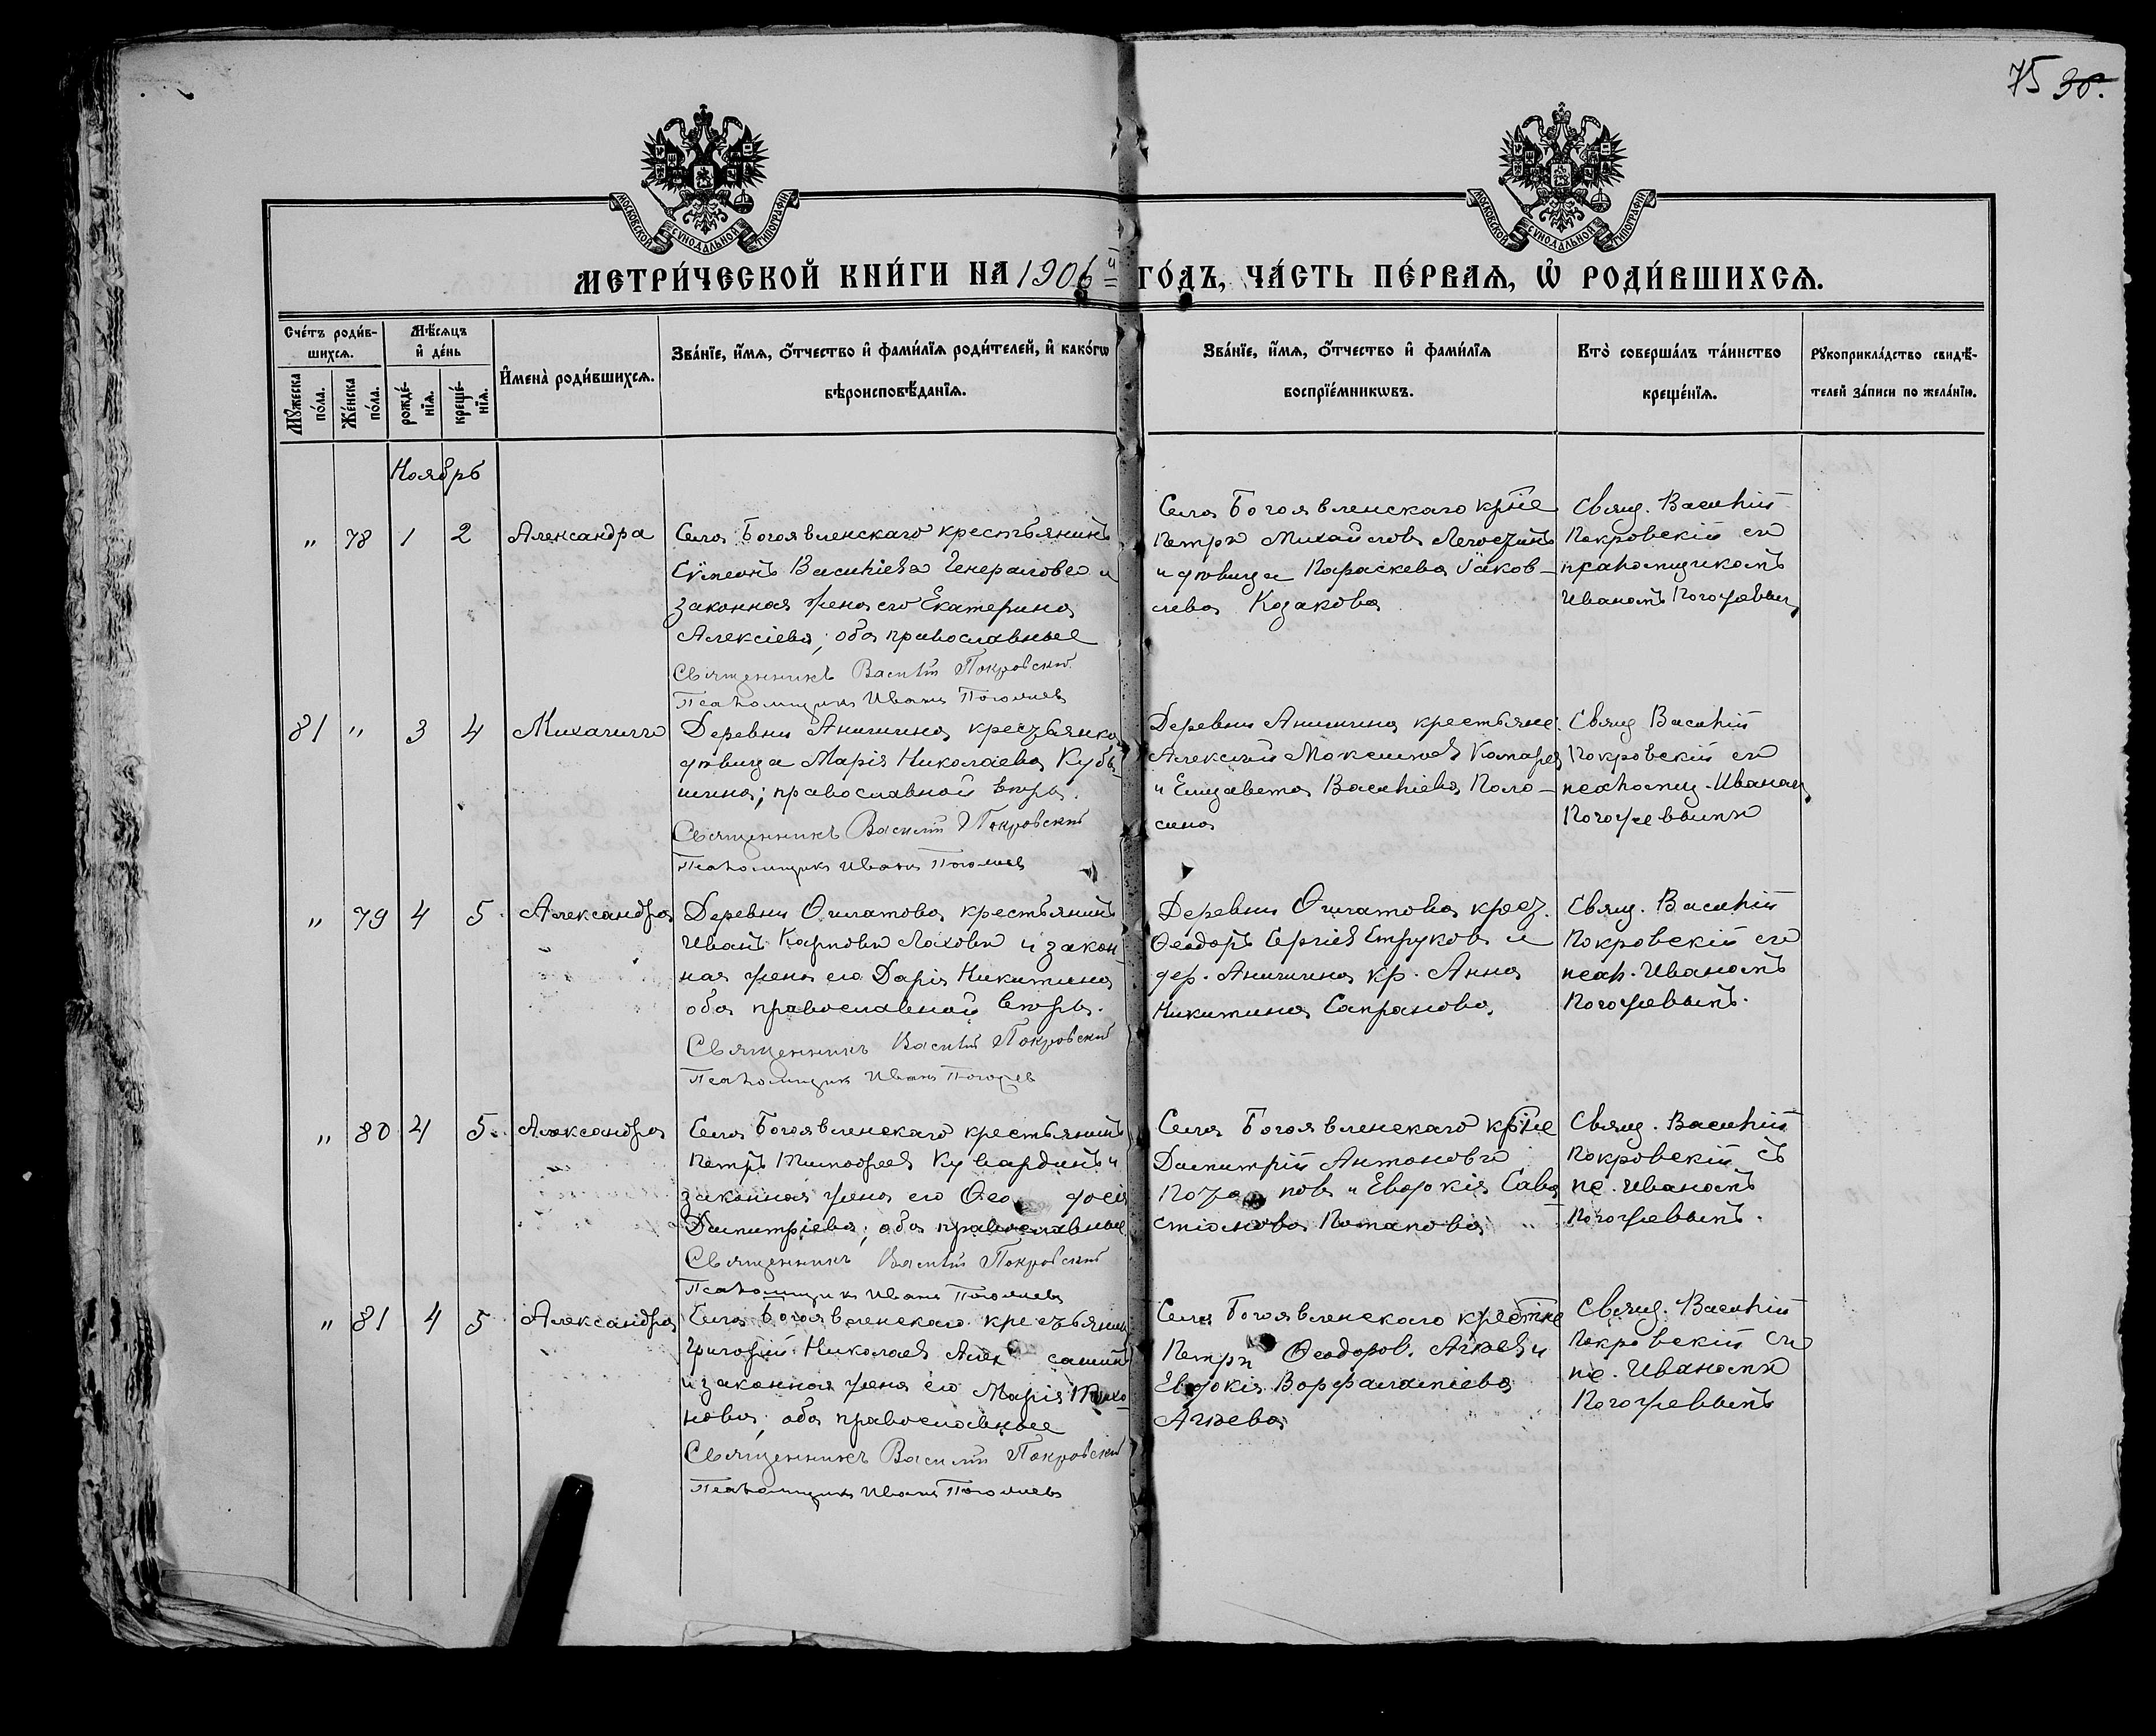 75 30.
МОСКОВСКОЙ СУНОДАЛЬНОЙ ТИПОГРАФІИ
МОСКОВСКОЙ СУНОДАЛЬНОЙ ТИПОГРАФІИ
МЕТРИ́ЧЕСКОЙ КНИ́ГИ НА 1906 й ГО́ДЪ, ЧА́СТЬ ПЕ́РВАѦ, Ѽ РОДИ́ВШИХСѦ.
Сче́тъ роди́в-
шихсѧ.
Мꙋ́жеска по́ла.
Же́нска по́ла.
Мѣ́сѧцъ
и҆ де́нь
рожде́-
нїѧ.
креще́-
нїѧ.
И҆мена̀ роди́вшихсѧ.
Зва́нїе, и҆́мѧ, ѻ҆́тчество и҆ фами́лїѧ роди́телей, и҆ како́гѡ
вѣроисповѣ́данїѧ.
Зва́нїе, и҆́мѧ, ѻ҆́тчество и҆ фами́лїѧ
воспрїе́мникѡвъ.
Кто̀ соверша́лъ та́инство
креще́нїѧ.
Рꙋкоприкла́дство свидѣ́-
телей за́писи по жела́нїю.
Ноябрь
" 78 1 2 Александра
Села Богоявленскаго крестьянинъ
Сѵмеонъ Василіевъ Генералово и
законная жена его Екатерина
Алексіева; оба православные
Священникъ Василій Покровскій
Псаломщикъ Иванъ Погожевъ
Села Богоявленскаго крне
Петръ Михайловъ
и дѣвица Параскева Іаков-
лева Козакова
Свящ. Василій
Покровскій съ
псаломщикомъ
Иваномъ Погожевым
81 " 3 4 Михаилъ
Деревни Аничина крестьянка
дѣвица Марія Николаева Кубы-
шина; православной вѣры.
Священникъ Василій Покровскій
Псаломщикъ Иванъ Погожевъ
Деревни Аничина крестьяне
Алексѣй Максимов
и Елизавета Василіева Поло-
сина
Свящ Василій
Покровскій съ
псаломщ. Иваном
Погожевымъ
" 79 4 5 Александра
Деревни крестьянинъ
Иванъ Карповъ Лаховъ и закон-
ная жена его Дарія Никитина
оба православной вѣры.
Священникъ Василій Покровскій
Псаломщикъ Иванъ Погожев
Деревни крест.
Ѳеодоръ Сергіев Струковъ и
дер. Аничина кр. Анна
Никитина Сапранова.
Свящ. Василій
Покровскій съ
псал. Иваномъ
Погожевымъ.
" 80 4 5. Александра
Села Богоявленскаго крестьянинъ
Петръ Тимоѳеев Кувардинъ и
законная жена его Ѳео досія
Димитріева; оба православные
Священникъ Василій Покровскій
Псаломщикъ Иванъ Погожевъ
Села Богоявленскаго крне
Димитрій Антоновъ
и Евдокія Сава
стіанова Потапова
Свящ. Василій
Покровскій съ
пс. Иваномъ
Погожевымъ.
" 81 4 5 Александра
Села Богоявленскаго крестьянин
Григорій Николаев
и законная жена его Марія Тихо-
нова; оба православные
Священникъ Василій Покровскій
Псаломщикъ Иванъ Погожевъ
Села Богоявленскаго крестне
Петръ Ѳеодоров. Агѣев и
Евдокія Варфаламіева
Агѣева
Свящ. Василій
Покровскій съ
пс. Иваномъ
Погожевымъ